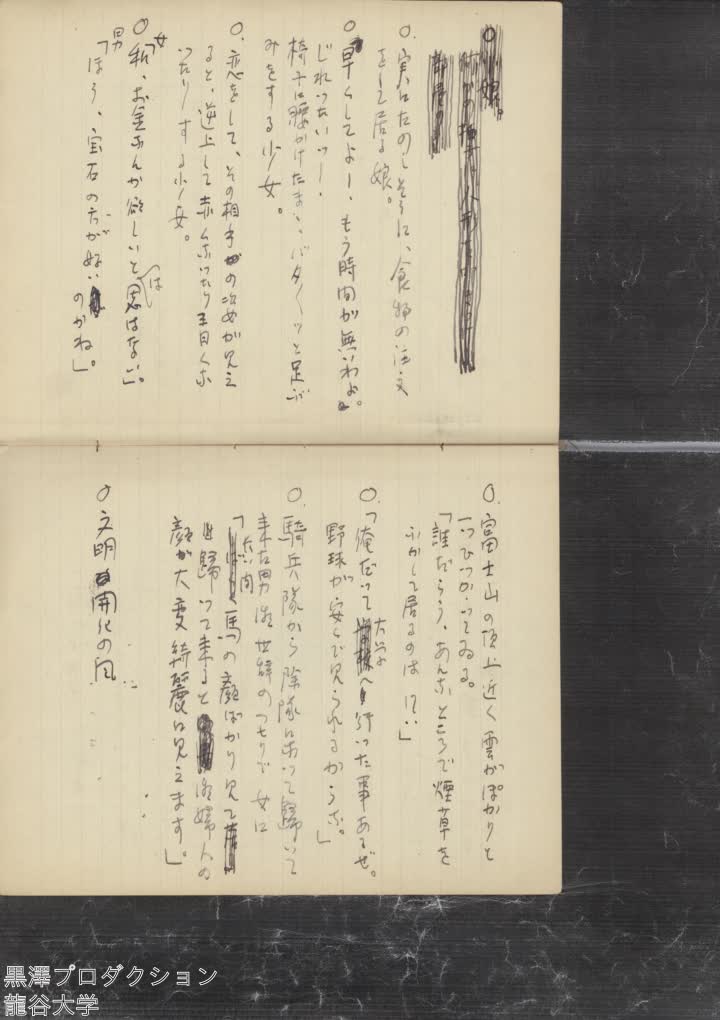 〇娘。
〇、実にたのしそうに、食物の注文
をして居る娘。
〇早くしてよー、もう時間が無いわよ。
じれったいッー
椅子に腰かけたまゝ、バタ〱ッと足ぶ
みをする少女。
〇、恋をして、その相手の姿が見え
ると、逆上して赤くなったり青くな
ったりする少女。
〇女「私、お金なんか欲しいとは思はない」。
男「ほう、宝石の方が好い
のかね」。
〇、富士山の頂上近く雲がぽかりと
一つひっかゝってゐる。
「誰だらう、あんなところで煙草を
ふかして居るのは!?」
〇、「俺だって大学へ行った事あるぜ。
野球が安くで見られるからな。」
〇、騎兵隊から除隊になって歸いて
来た男、お世辞のつもりで女に
「長い間馬の顔ばかり見て
歸って来ると御婦人の
顔が大変綺麗に見えます」。
〇文明開化の図
黒澤プロダクション
龍谷大学